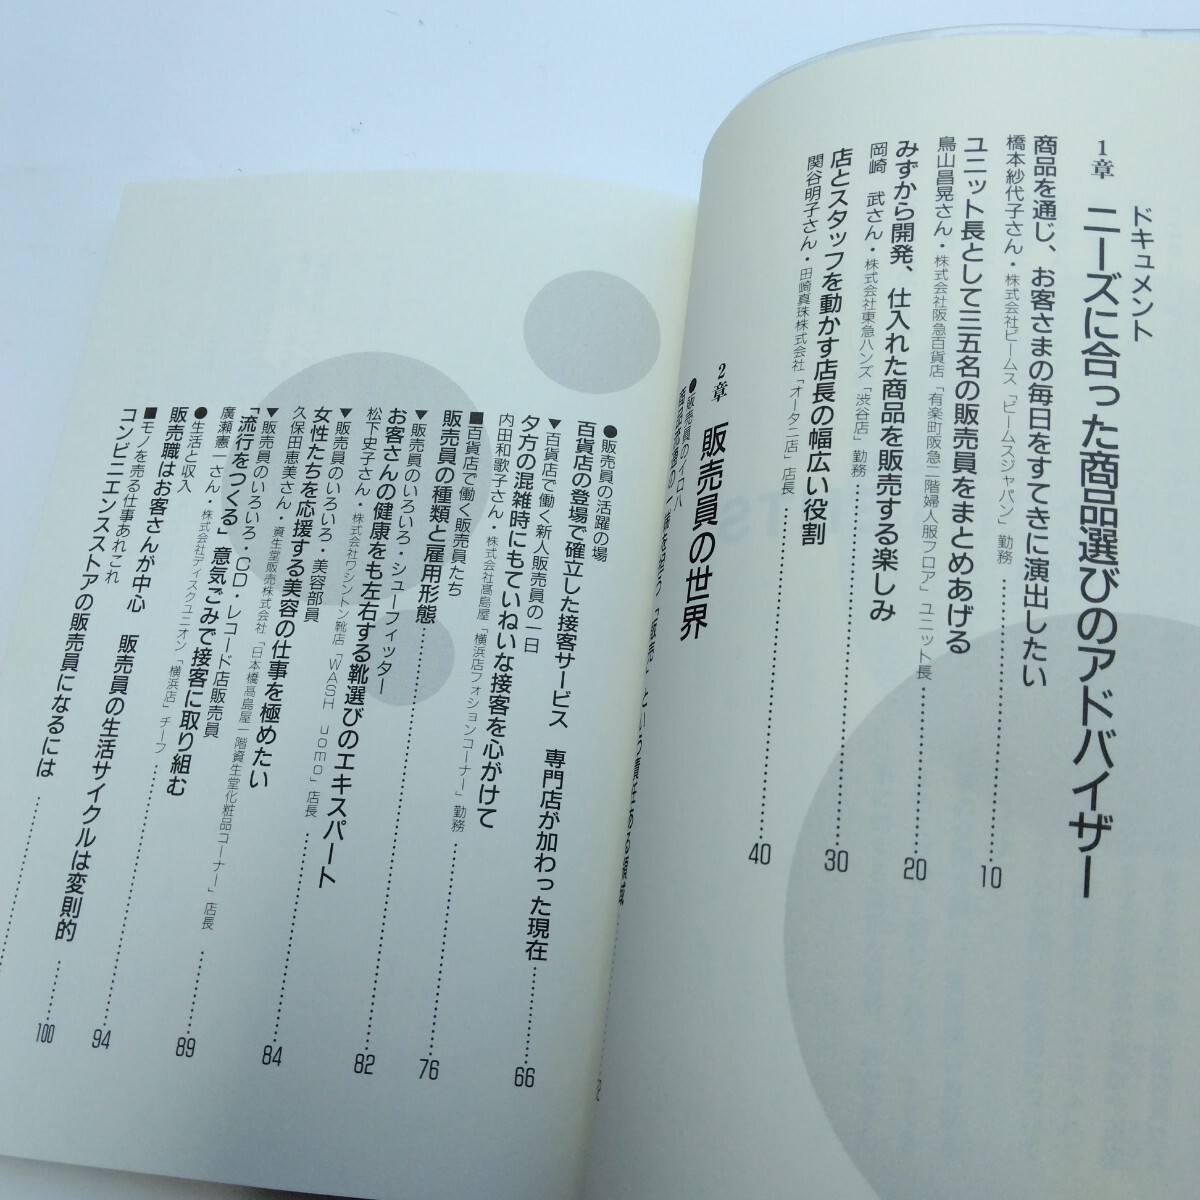 1章 ドキュメント ニーズに合った商品選びのアドバイザー
商品を通じ、お客さまの毎日をすてきに演出したい
橋本紗代子さん・株式会社ビームス「ビームスジャパン」勤務 …… 10
ユニット長として三五名の販売員をまとめあげる
鳥山昌晃さん・株式会社阪急百貨店「有楽町阪急二階婦人服フロア」ユニット長 …… 20
みずから開発、仕入れた商品を販売する楽しみ
岡崎 武さん・株式会社東急ハンズ「渋谷店」勤務 …… 30
店とスタッフを動かす店長の幅広い役割
関谷明子さん・田崎真珠株式会社「オータニ店」店長 …… 40
2章 販売員の世界
●販売員のイロハ
●販売員の活躍の場
百貨店の登場で確立した接客サービス 専門店が加わった現在 …… 66
▼百貨店で働く新人販売員の一日
夕方の混雑時にもていねいな接客を心がけて
内田和歌子さん・株式会社髙島屋「横浜店フォションコーナー」勤務 …… 76
■百貨店で働く販売員たち
販売員の種類と雇用形態 …… 82
▼販売員のいろいろ・シューフィッター
お客さんの健康をも左右する靴選びのエキスパート
松下史子さん・株式会社ワシントン靴店「WASH uomo」店長 …… 84
▼販売員のいろいろ・美容部員
女性たちを応援する美容の仕事を極めたい
久保田恵美さん・資生堂販売株式会社「日本橋髙島屋一階資生堂化粧品コーナー」店長 …… 89
▼販売員のいろいろ・CD・レコード店販売員
「流行をつくる」意気ごみで接客に取り組む
廣瀬憲一さん・株式会社ディスクユニオン「横浜店」チーフ …… 94
●生活と収入
販売職はお客さんが中心 販売員の生活サイクルは変則的 …… 100
■モノを売る仕事あれこれ
コンビニエンスストアの販売員になるには